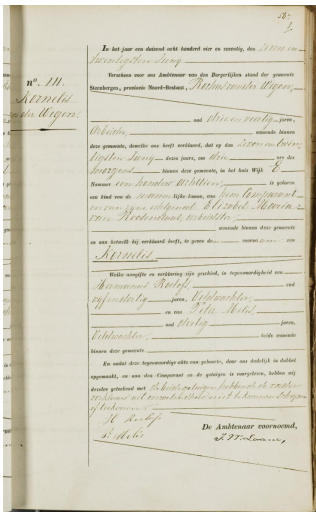 n° 111.
Kornelis
van der Wegen.
In het jaar een duizend acht honderd vier en zeventig, den zeven en
twintigsten Juny
Verscheen voor ons Ambtenaar van den Burgerlijken stand der gemeente
Steenbergen, provincie Noord-Braband, van der Wegen,
oud drie en veertig jaren,
Arbeider, wonende binnen
deze gemeente, dewelke ons heeft verklaard, dat op den zeven en twin
tigsten Juny dezes jaars, om drie ure des
morgens binnen deze gemeente, in het huis Wijk E
Nummer een honderd achttien, is geboren
een kind van de mannelijke kunne, van hem Comparant
en van zyne echtgenoot Elizabet Maria
van Roosendaal, arbeidster
wonende binnen deze gemeente
en aan hetwelk hij verklaard heeft, te geven de voornaam van
Kornelis.
Welke aangifte en verklaring zijn geschied, in tegenwoordigheid van
Roelofs oud
vyfenveertig jaren, Veldwachter,
en van Melis
oud veertig jaren,
Veldwachter, beide wonende
binnen deze gemeente
En nadat deze tegenwoordige akte van geboorte, door ons dadelijk in dubbel
opgemaakt, en aan den Comparant en de getuigen is voorgelezen, hebben wij
dezelve geteekend met de beide getuigen hebbende de vader
verklaard uit onvermogendheid niet te kunnen schrijven
of teekenen.
H Roelofs
P. Melis
De Ambtenaar voornoemd,